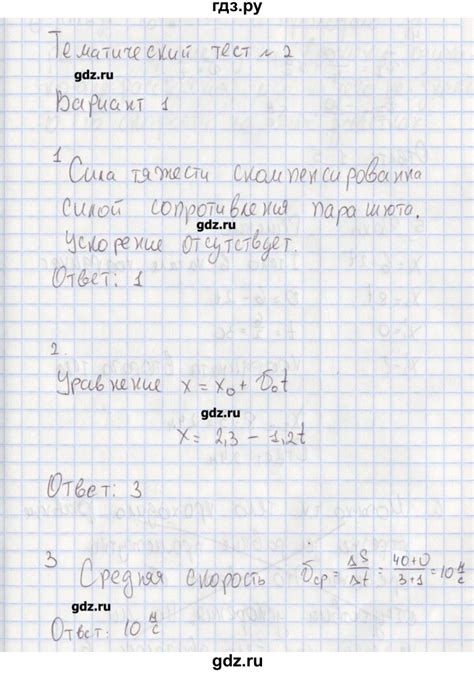 гдз.ру
Тематический тест № 2
gdz.ru
Вариант 1
1 Сила тяжести скомпенсированна
силой сопротивления парашюта.
gdz.ru
Ускорение отсутствует.
Ответ: 1
2.
gdz.ru
Уравнение x = x₀ + v₀t
gdz.ru
x = 2,3 - 1,2t
Ответ: 3
gdz.ru
3 Средняя скорость vср = ΔS/Δt = (40+0)/(3+1) = 10 м/с
gdz.ru
Ответ: 10 м/с
gdz.ru
gdz.ru